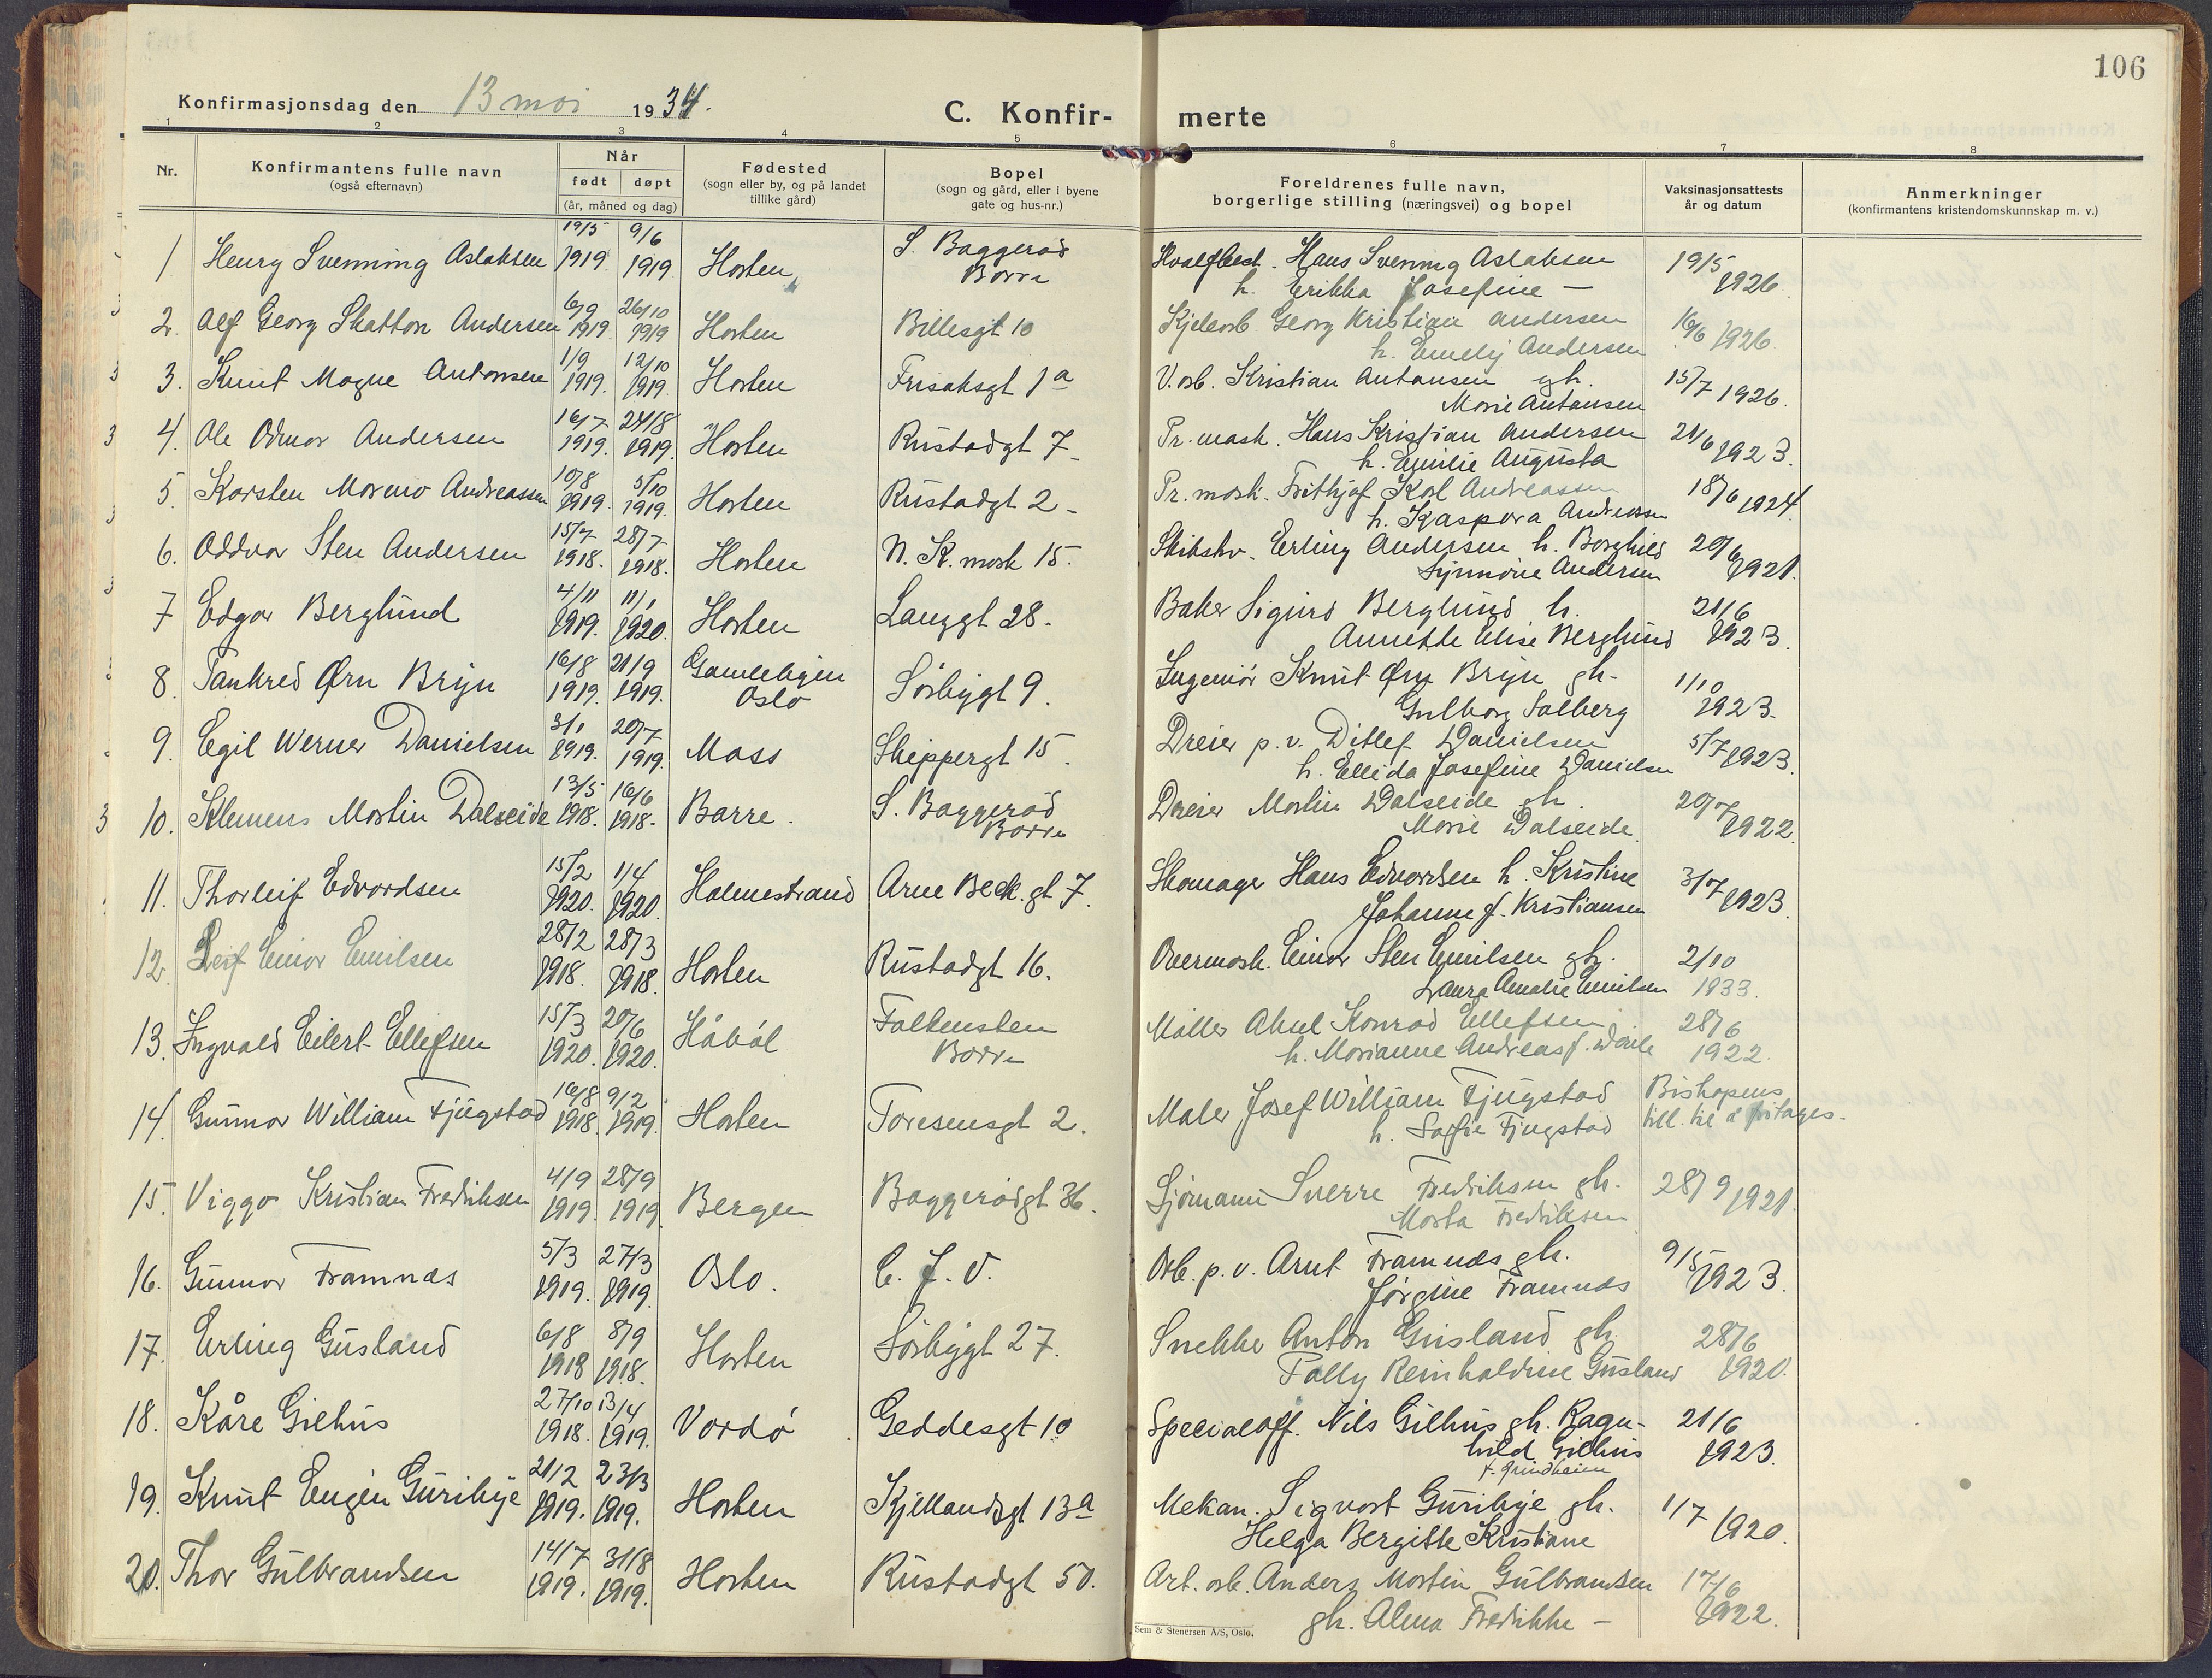 106
Konfirmasjonsdag den 13 mai 1934.
C. Konfir- merte
1 2 3 4 5 6 7 8
Nr.
Konfirmantens fulle navn
(også efternavn)
Når
født døpt
(år, måned og dag)
Fødested
(sogn eller by, og på landet
tillike gård)
Bopel
(sogn og gård, eller i byene
gate og hus-nr.)
Foreldrenes fulle navn,
borgerlige stilling (næringsvei) og bopel
Vaksinasjonsattests
år og datum
Anmerkninger
(konfirmantens kristendomskunnskap m. v.)
19/5 9/6 S. Baggerød
1 Henry Svenning Aslaksen 1919 1919 Horten, Borre Hvalfbest. Hans Svenning Aslaksen 19/5 1926
h. Erikka Josefine —
6/9 26/10
2. Alf Georg Skatton Andersen 1919 1919 Horten Billesgt 10 Kjelearb. Georg Kristian Andersen 16/6 1926.
h. Emely Andersen
1/9 12/10
3. Knut Magne Antonsen 1919. 1919. Horten Frisaksgt 1a V. arb. Kristian Antonsen gh. 15/7 1926.
Marie Antonsen
16/7 24/8
4. Ole Odmar Andersen 1919. 1919. Horten Rustadgt 7 Pr. mask. Hans Kristian Andersen 21/6 1923.
h. Emilie Augusta
10/8 5/10
5. Karsten Moreno Andreassen 1919. 1919. Horten Rustadgt 2 Pr. mask. Frithjof Karl Andreassen 18/6 1924.
h. Kaspara Andreassen
15/7 28/7
6. Oddvar Sten Andersen 1918. 1918. Horten N. K. mosk 15. Skibstv. Erling Andersen h. Borghild 20/6 1921.
Synnøve Andersen
4/11 11/1
7 Edgar Berglund 1919. 1920. Horten Langgt 28. Baker Sigurd Berglund h. 21/6 1923.
Annette Elise Berglund
16/8 21/9
8. Tankred Ørn Bryn 1919. 1919. Gamlebyen Oslo Sørbygt 9. Ingeniør Knut Ørn Bryn gh. 1/10 1923.
Gulborg Solberg
3/1 20/7
9. Egil Werner Danielsen 1919. 1919. Moss Skippergt 15. Dreier p. v. Ditlef Danielsen 5/7 1923.
h. Ellida Josefine Danielsen
13/5 16/6
10. Klemens Martin Dalseide 1918. 1918. Borre. S. Baggerød Borre Dreier Martin Dalseide gh. 20/7 1922.
Marie Dalseide
15/2 1/4
11. Thorleif Edvardsen 1920. 1920. Holmestrand Arne Beck. gt 7. Skomager Hans Edvardsen h. Kristine 3/7 1923.
Johanne f. Kristiansen
28/2 28/3
12. Leif Einar Emilsen 1918. 1918. Horten Rustadgt 16. Overmask. Einar Sten Emilsen gh. 2/10 1933.
Laura Amalie Emilsen
15/3 20/6
13. Ingvald Eilert Ellefsen 1920. 1920. Håbøl Falkensten Borre Møller Aksel Konrad Ellefsen 28/6 1922.
h. Marianne Andreas f.
16/8 9/2
14. Gunnar William Fjugstad 1918. 1919. Horten Toresensgt 2. Maler Josef William Fjugstad Biskopens
h. Sofie Fjugstad till. til å fritages.
4/9 28/9
15. Viggo Kristian Fredriksen 1919. 1919. Bergen Baggerødgt 36. Sjømann Sverre Fredriksen gh. 28/9 1921.
Marta Fredriksen
5/3 27/3
16. Gunnar Framnæs 1919. 1919. Oslo. C. J. V. Arb. p. v. Arnt Framnæs gh. 9/5 1923.
Jørgine Framnæs
6/8 8/9
17. Erling Gusland 1918 1918. Horten Sørbygt 27. Snekker Anton Gusland gh. 28/6 1920.
Polly Reinholdine Gusland
27/10 13/4
18. Kåre Gilhus 1918. 1919. Vardø Geddesgt 10 Specialoff. Nils Gilhus gh. Ragn- 21/6 1923.
hild Gilhus
f. Grindheim
21/2 23/3
19. Knut Eugen Guribye 1919. 1919. Horten Kjellandsgt 13a Mekan. Sigvart Guribye gh. 1/7 1920.
Helga Bergitte Kristiane
14/7 31/8
20. Thor Gulbrandsen 1919. 1919. Horten Rustadgt 50. Art. arb. Anders Martin Gulbrandsen 17/6 1922.
gh. Alma Fredrikke —
Sem & Stenersen A/S, Oslo.